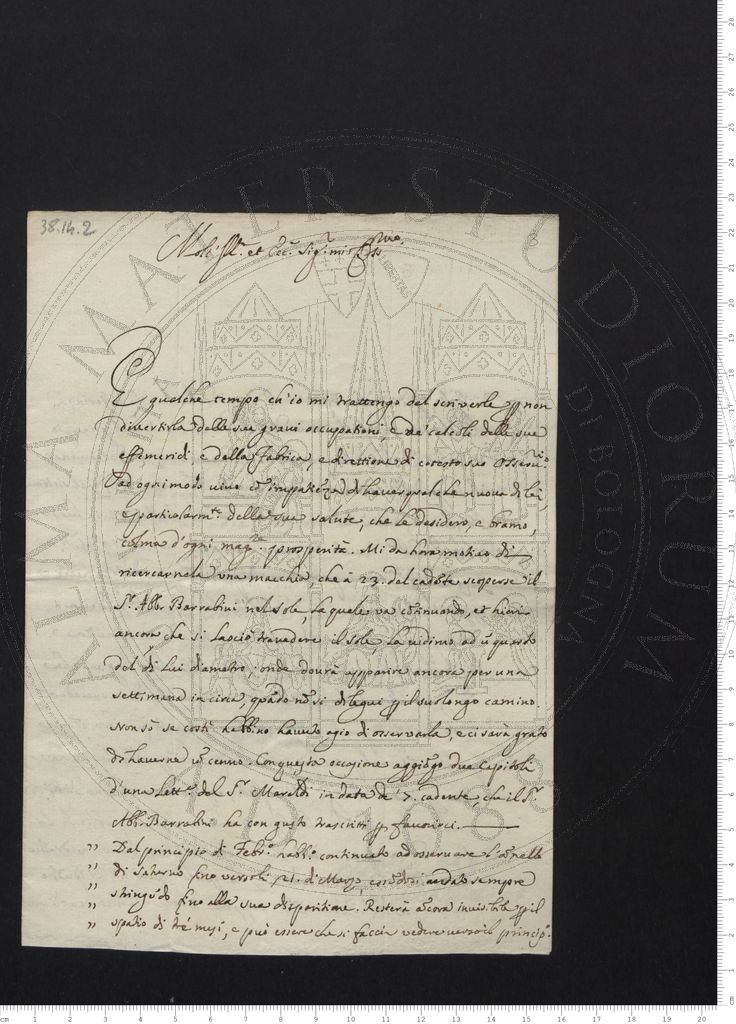 38.14.2
Molt' Ill.e et Ecc.mo Sig.r mio
È qualche tempo ch'io mi trattengo dal scriverle non
divertirla dalle sue gravi occupationi, e de' calcoli delle sue
effimeridi, e della Fabrica, e direttione di cotesto suo Osserv.rio
ad ogni modo vivo impatiēza di haver qualche nuova di lei,
e particolarm.te della sua salute, che le desidero, e bramo,
colma d'ogni mag.re prosperità. Mi da hora motivo di
ricercarnela una macchia, che à 23. del cadēte scoperse il
S.r Abb. Barrabini nel sole, la quale va cōtinuando, et hieri
ancora che si lasciò travedere il sole, la vidimo ad ū quarto
del di lui diametro; onde dourà apparire ancora per una
settimana in circa, quādo nō si dilegui il suo longo camino.
Non sò se costì habbino havuto agio di osservarla, e ci sarà grato
di haverne ū cenno. Con questa occasione aggiōgo due capitoli
d'una Lett.a del S.r Maraldi in data de' 7. cadente, che il S.r
Abb. Barrabini ha con gusto trascritti favorirci.
" Dal principio di Febr.o habb.o continuato ad osservare l'Anello
" di Saturno fino verso li 21. di Marzo, andato sempre
" stringēdo fino alla sua disparitione. Resterà ācora invisibile il
" spatio di trè mesi, e può essere che si faccia vedere verso il princip.o
ALMA MATER STUDIORUM
BOLOGNA
A.D. 1088